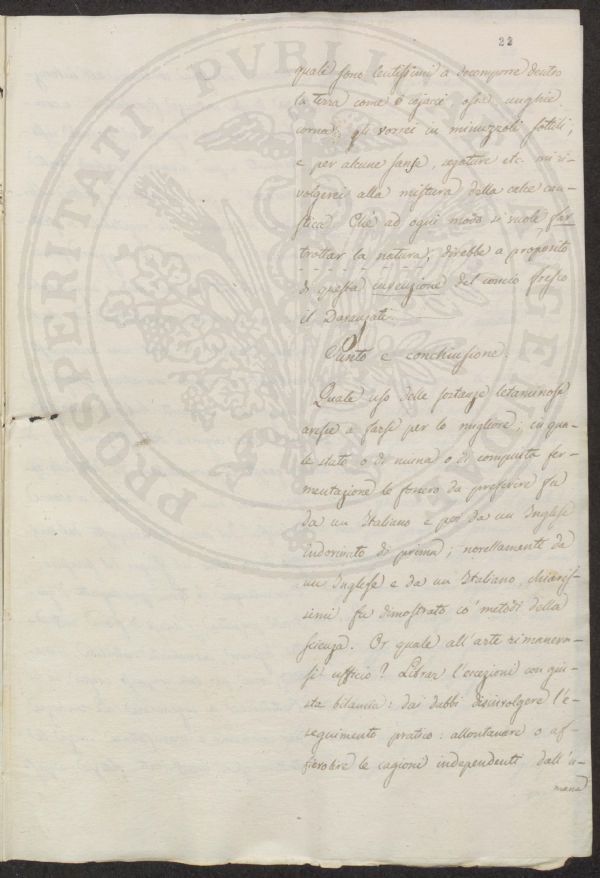 22
quale sono lentissimi a decomporre dentro
la terra come i ossia unghie,
corna; gli vorrei in minuzzoli sottili;
e per alcune sanse, segature etc. mi ri-
volgerei alla mistura della calce cau-
stica. Chè ad ogni modo si vuole far
trottar la natura, direbbe a proposito
di questa invenzione del concio fresco
il Davanzati.
Punto e conchiusione.
Quale uso delle sostanze letaminose
avesse a farsi per lo migliore; in qua-
le stato o di niuna o di compiuta fer-
mentazione le fossero da preferire fu
da un Italiano e poi da un Inglese
indovinato di prima; novellamente da
un Inglese e da un Italiano, chiaris-
simi, fu dimostrato co' metodi della
scienza. Or quale all'arte rimaneva-
si ufficio? Librar l'eccezioni con giu-
sta bilancia: dai dubbi disinvolgere l'e-
seguimento pratico: allontanare o af-
fievolire le cagioni independenti dall'u-
mana
PROSPERITATI PVBLICAE AVGENDAE